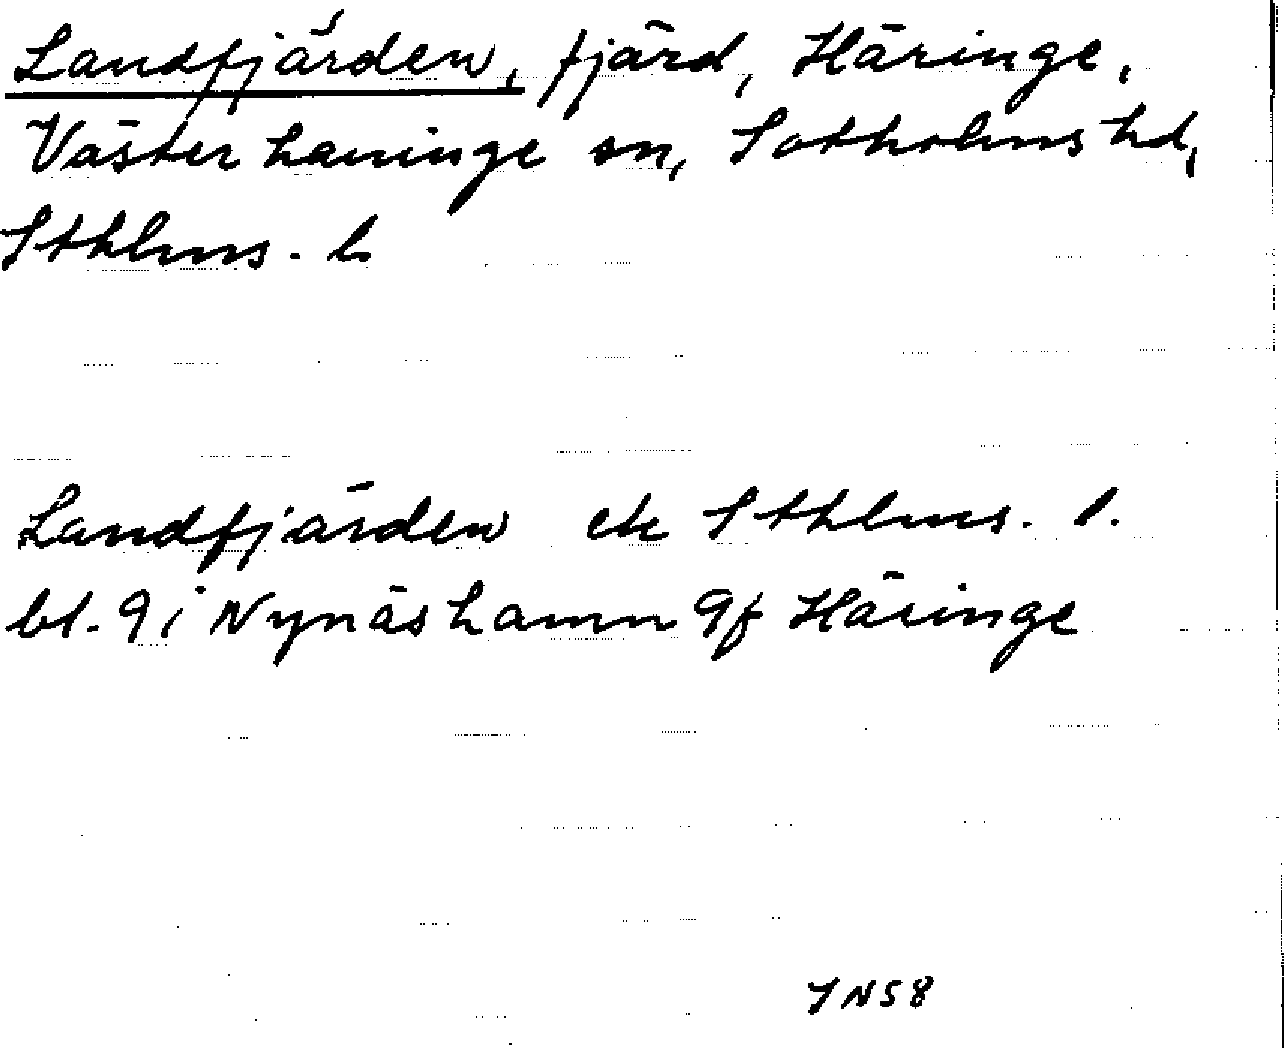 Landfjärden, fjärd, Häringe,
Västerhaninge sn, Sotholms hd,
Sthlms. l.
Landfjärden ek Sthlms. l.
bl. 9 i Nynäshamn 9f Häringe
JN58